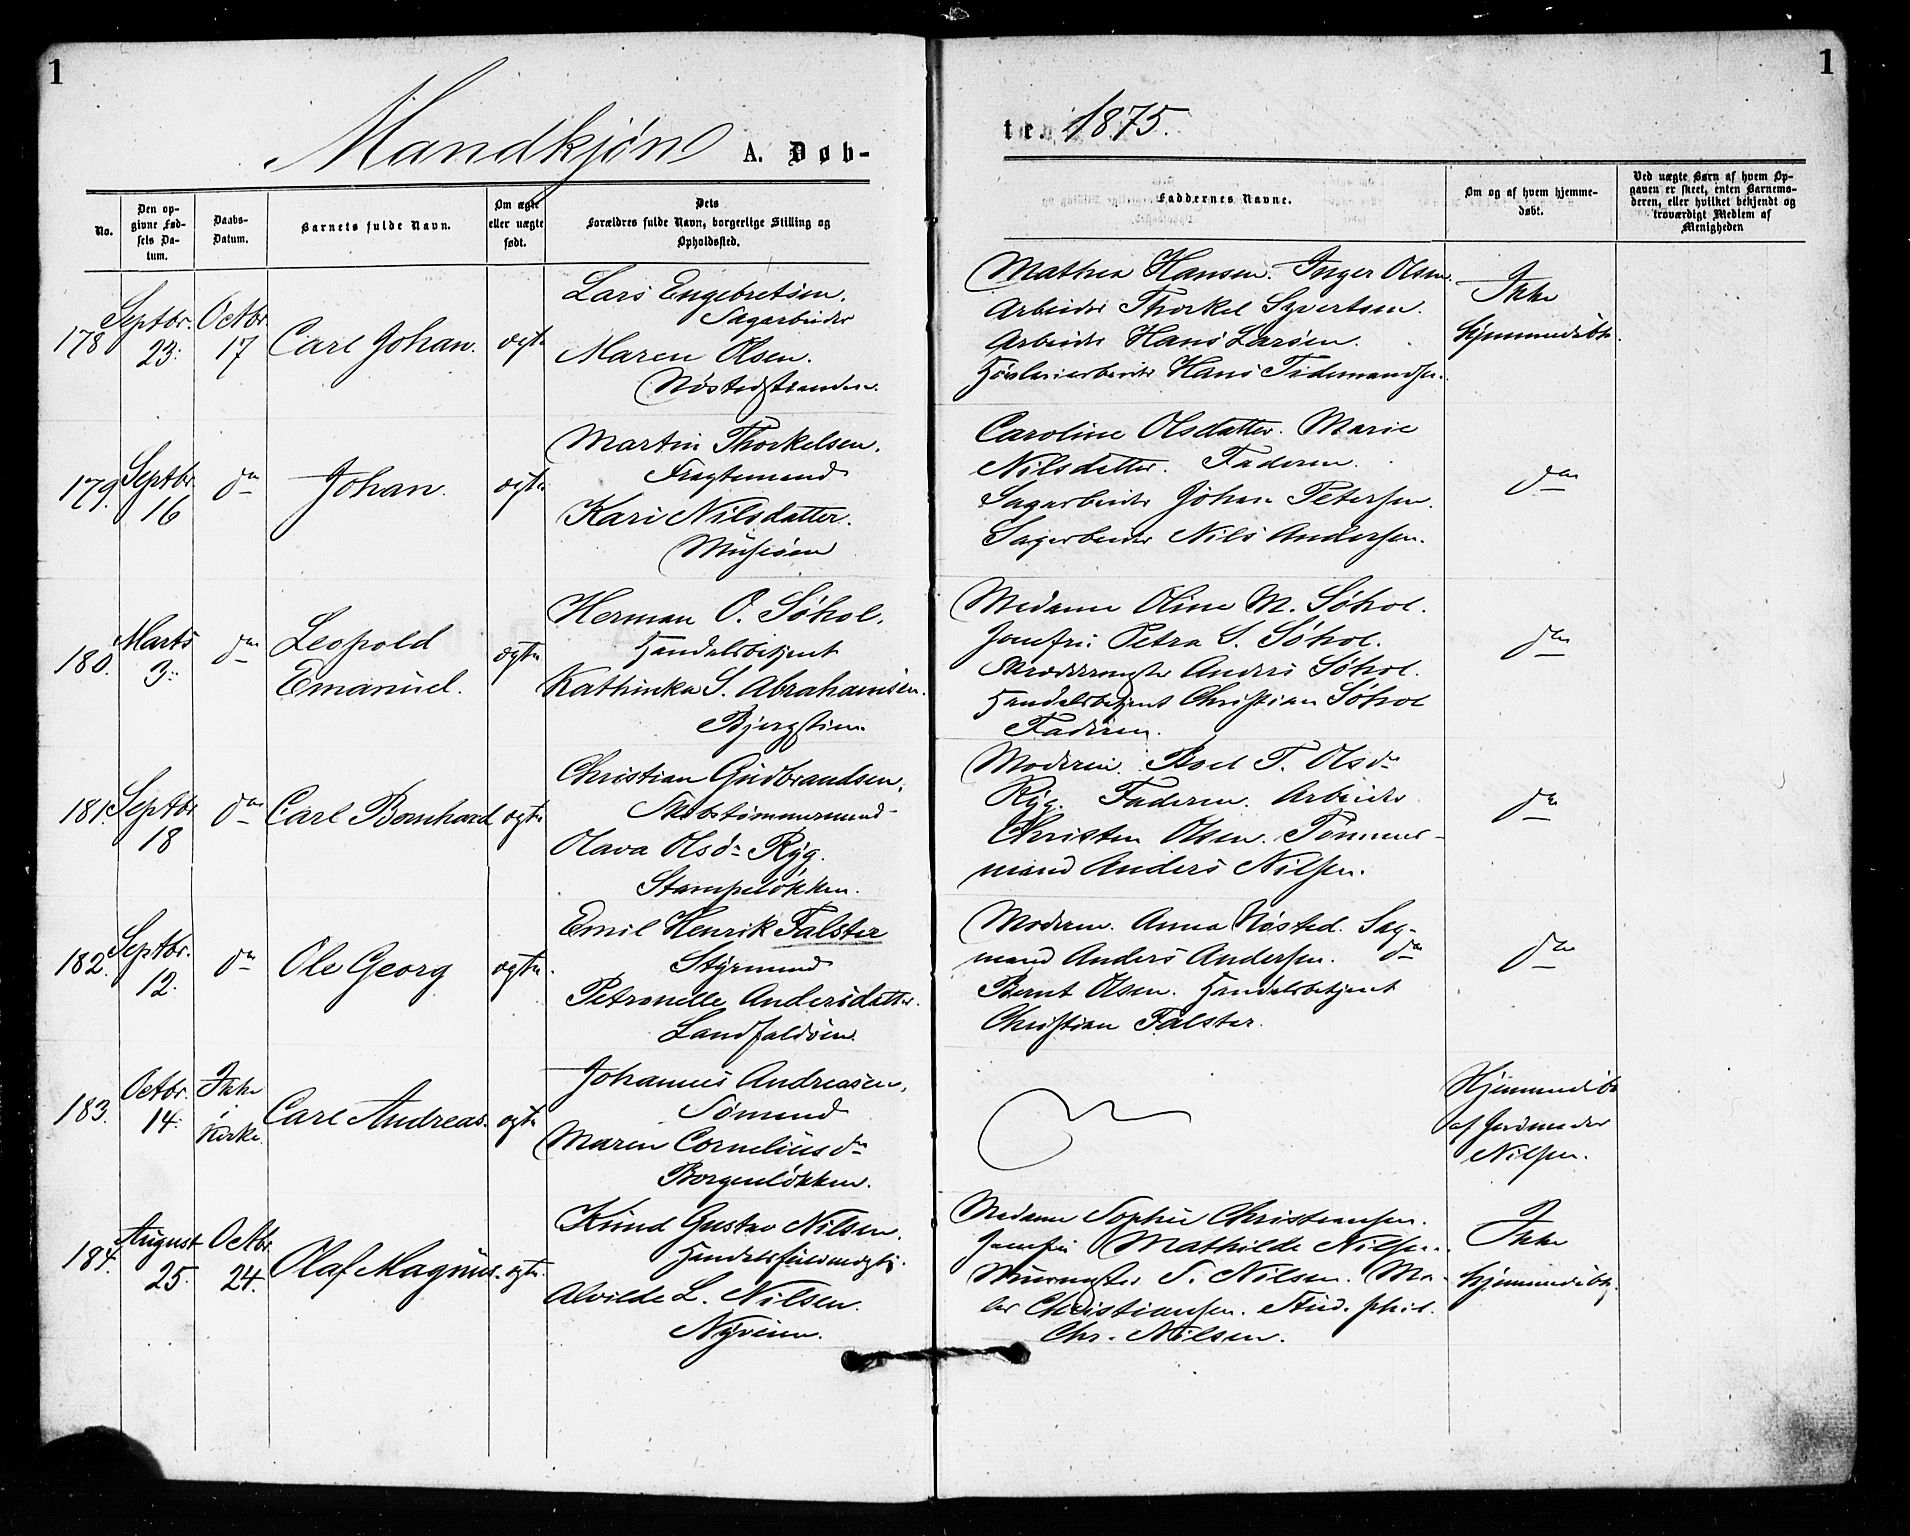 1
1
Mandkjøn A. Døb-
te 1875.
No.
Den opgivne Fødsels Datum.
Daabs-Datum.
Barnets fulde Navn.
Om ægte eller uægte født.
Dets Forældres fulde Navn, borgerlige Stilling og Opholdssted.
Faddernes Navne.
Om og af hvem hjemmedøbt.
Ved uægte Børn af hvem Opgaven er skeet, enten Barnemoderen, eller hvilket bekjendt og troværdigt Medlem af Menigheden
178 Septbr. 23. Octbr. 17 Carl Johan. ægte
Lars Engebretsen.
Sagarbeider
Maren Olsen.
Nøstedstranden.
Mathea Hansen. Inger Olsen.
Arbeider Thorkel Syvertsen.
Arbeider Hans Larsen.
Hans Tidemandsen.
Ikke
hjemmedøbt.
179. Septbr. 16 do Johan. ægte
Martin Thorkelsen.
Fragtemand
Kari Nilsdatter.
Caroline Olsdatter. Marie
Nilsdatter. Faderen.
Sagarbeider Johan Petersen.
Sagarbeider Nils Andersen.
do
180. Marts 3. do Leopold
Emanuel. ægte
Herman O. Søhol.
Handelsbetjent
Kathinka S. Abrahamsen.
Bjergstien.
Madame Oline M. Søhol.
Jomfru Petra S. Søhol.
Anders Søhol.
Handelsbetjent Christian Søhol
Faderen.
do
181. Septbr. 18 do Carl Bernhard ægte
Christian Gudbrandsen.
Skibstømmermand
Olava Olsdr Ryg.
Stampeløkken.
Moderen. Boel T. Olsdr
Ryg. Faderen. Arbeider
Christen Olsen. Tømmer-
mand Anders Nilsen.
do
182. Septbr. 12. do Ole Georg ægte.
Emil Henrik Falster
Styrmand
Petronelle Andersdatter.
Landfaldøen
Moderen. Anna Nøsted. Sag-
mand Anders Andersen. do
Bernt Olsen. Handelsbetjent
Christian Falster.
do
183. Octbr. 14. Ikke
i
Kirke. Carl Andreas. ægte
Johannes Andreasen.
Sømand
Maren Corneliusdr
Borgenløkken.
Hjemmedøbt
af Jordmoder
Nilsen.
184. August 25. Octbr. 24. Olaf Magnus. ægte.
Knud Gustav Nilsen.
Alvilde L. Nilsen.
Nyveien.
Madame Sophie Christiansen.
Jomfru Mathilde Nilsen.
Murmester S. Nilsen. Ma-
ler Christiansen. Stud. phil.
Chr. Nilsen.
Ikke
hjemmedøbt.